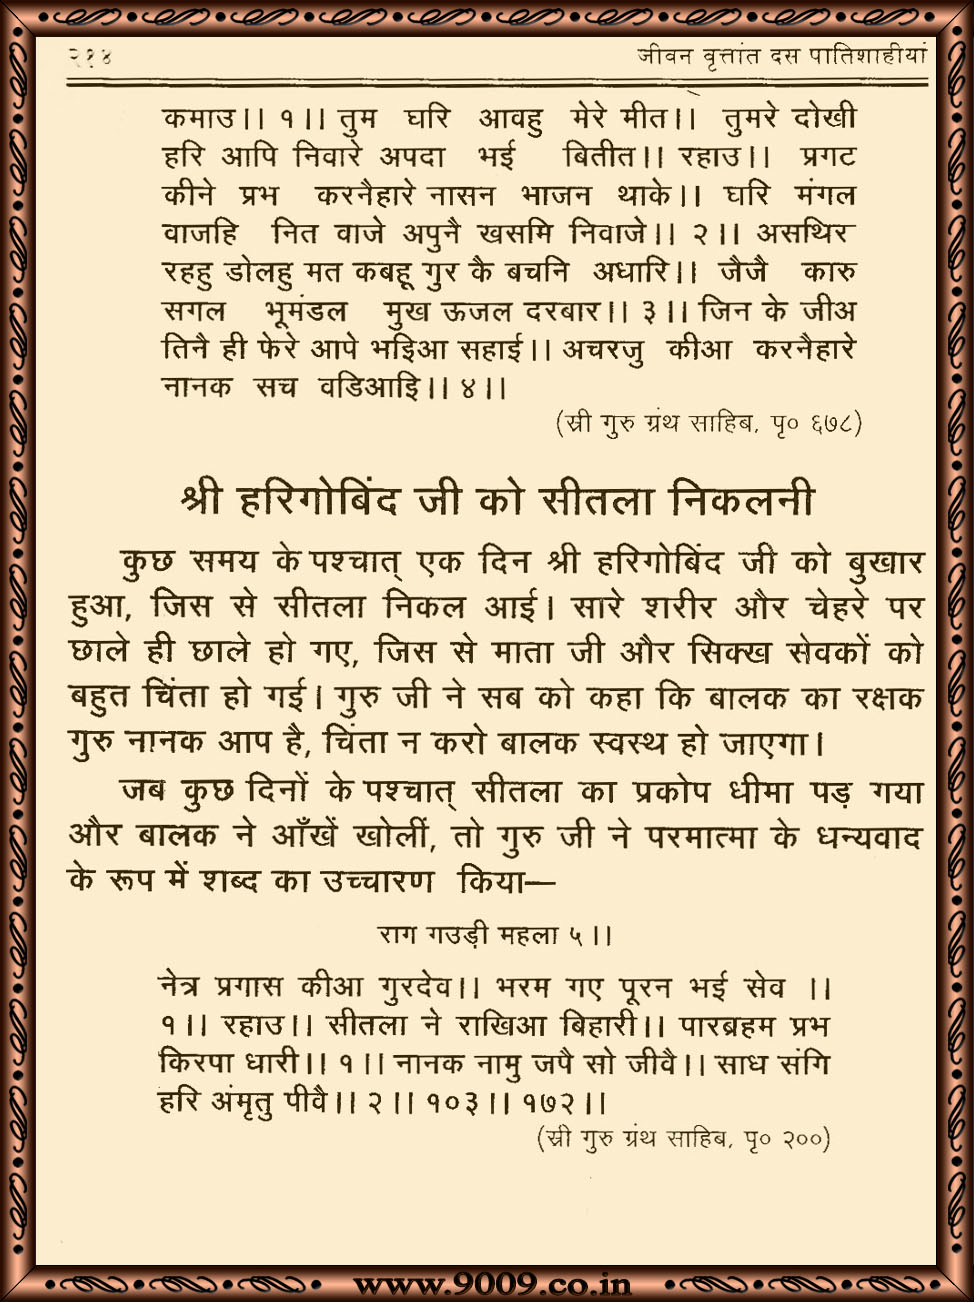 २१४ जीवन वृत्तांत दस पातिशाहीयां
कमाउ।। १।। तुम घरि आवहु मेरे मीत।। तुमरे दोखी
हरि आपि निवारे अपदा भई बितीत।। रहाउ।। प्रगट
कीने प्रभ करनैहारे नासन भाजन थाके।। घरि मंगल
वाजहि नित वाजे अपुनै खसमि निवाजे।। २।। असथिर
रहहु डोलहु मत कबहू गुर कै बचनि अधारि।। जैजै कारु
सगल भूमंडल मुख ऊजल दरबार।। ३।। जिन के जीअ
तिनै ही फेरे आपे भइिआ सहाई।। अचरजु कीआ करनैहारे
नानक सच वडिआइि।। ४।।
(स्री गुरु ग्रंथ साहिब, पृ० ६७८)
श्री हरिगोबिंद जी को सीतला निकलनी
कुछ समय के पश्चात् एक दिन श्री हरिगोबिंद जी को बुखार
हुआ, जिस से सीतला निकल आई। सारे शरीर और चेहरे पर
छाले ही छाले हो गए, जिस से माता जी और सिक्ख सेवकों को
बहुत चिंता हो गई। गुरु जी ने सब को कहा कि बालक का रक्षक
गुरु नानक आप है, चिंता न करो बालक स्वस्थ हो जाएगा।
जब कुछ दिनों के पश्चात् सीतला का प्रकोप धीमा पड़ गया
और बालक ने आँखें खोलीं, तो गुरु जी ने परमात्मा के धन्यवाद
के रूप में शब्द का उच्चारण किया—
राग गउड़ी महला ५।।
नेत्र प्रगास कीआ गुरदेव।। भरम गए पूरन भई सेव ।।
१।। रहाउ।। सीतला ने राखिआ बिहारी।। पारब्रहम प्रभ
किरपा धारी।। १।। नानक नामु जपै सो जीवै।। साध संगि
हरि अंमृतु पीवै।। २।। १०३।। १७२।।
(स्री गुरु ग्रंथ साहिब, पृ० २००)
www.9009.co.in